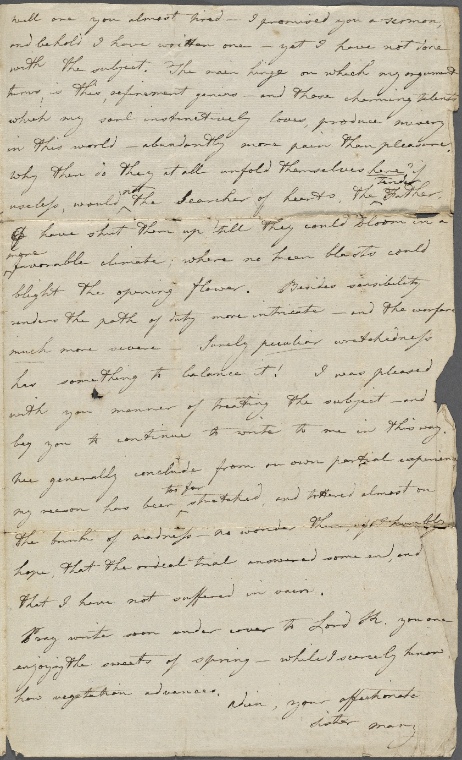 well are you almost tired — I promised you a sermon,
and behold I have written one — yet I have not done
with the subject. The main hinge on which my argument
turns is this, refinement genius — and those charming talents
which my soul instinctively loves, produce misery
in this world — abundantly more pain than pleasure.
Why then do they at all unfold themselves here? If
useless, would not the Searcher of hearts, the tender Father,
have shut them up till they could bloom in a
more favorable climate; where no keen blasts could
blight the opening flower. Besides sensibility
renders the path of duty more intricate — and the warfare
much more severe — Surely peculiar wretchedness
has something to balance it! I was pleased
with your manner of treating the subject — and
beg you to continue to write to me in this way.
We generally conclude from our own partial experience
my reason has been too far stretched, and tottered almost on
the brink of madness — no wonder then, if I humbly
hope, that the ordeal trial answered some end, and
that I have not suffered in vain.
Pray write soon under cover to Lord K. you are
enjoying the sweets of spring — while I scarcely know
how vegetation advances.
Adieu, your affectionate
sister Mary